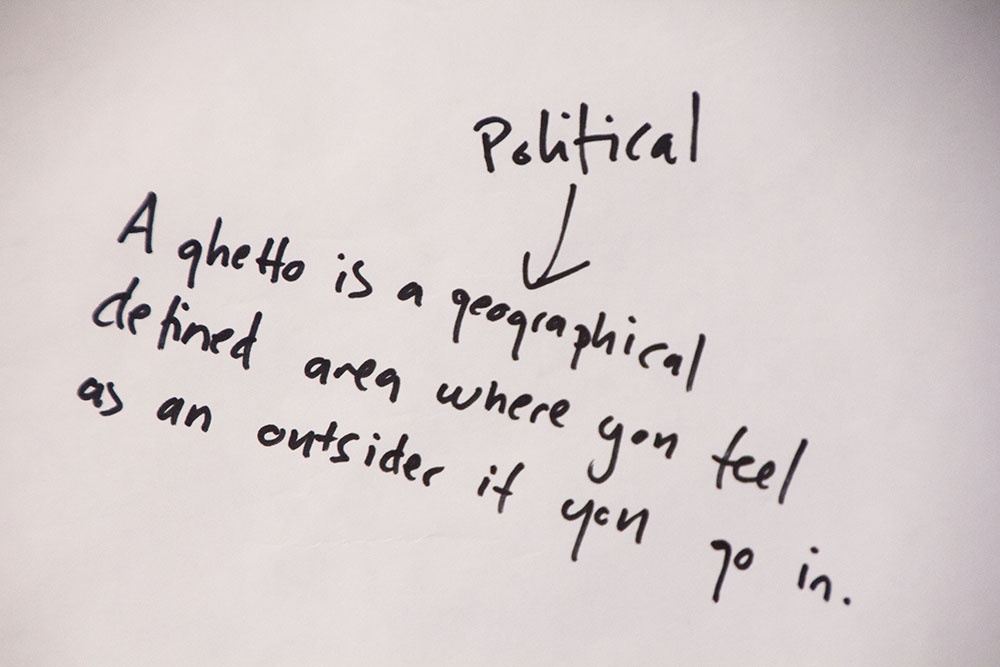 Political
A ghetto is a geographical
defined area where you feel
as an outsider if you go in.